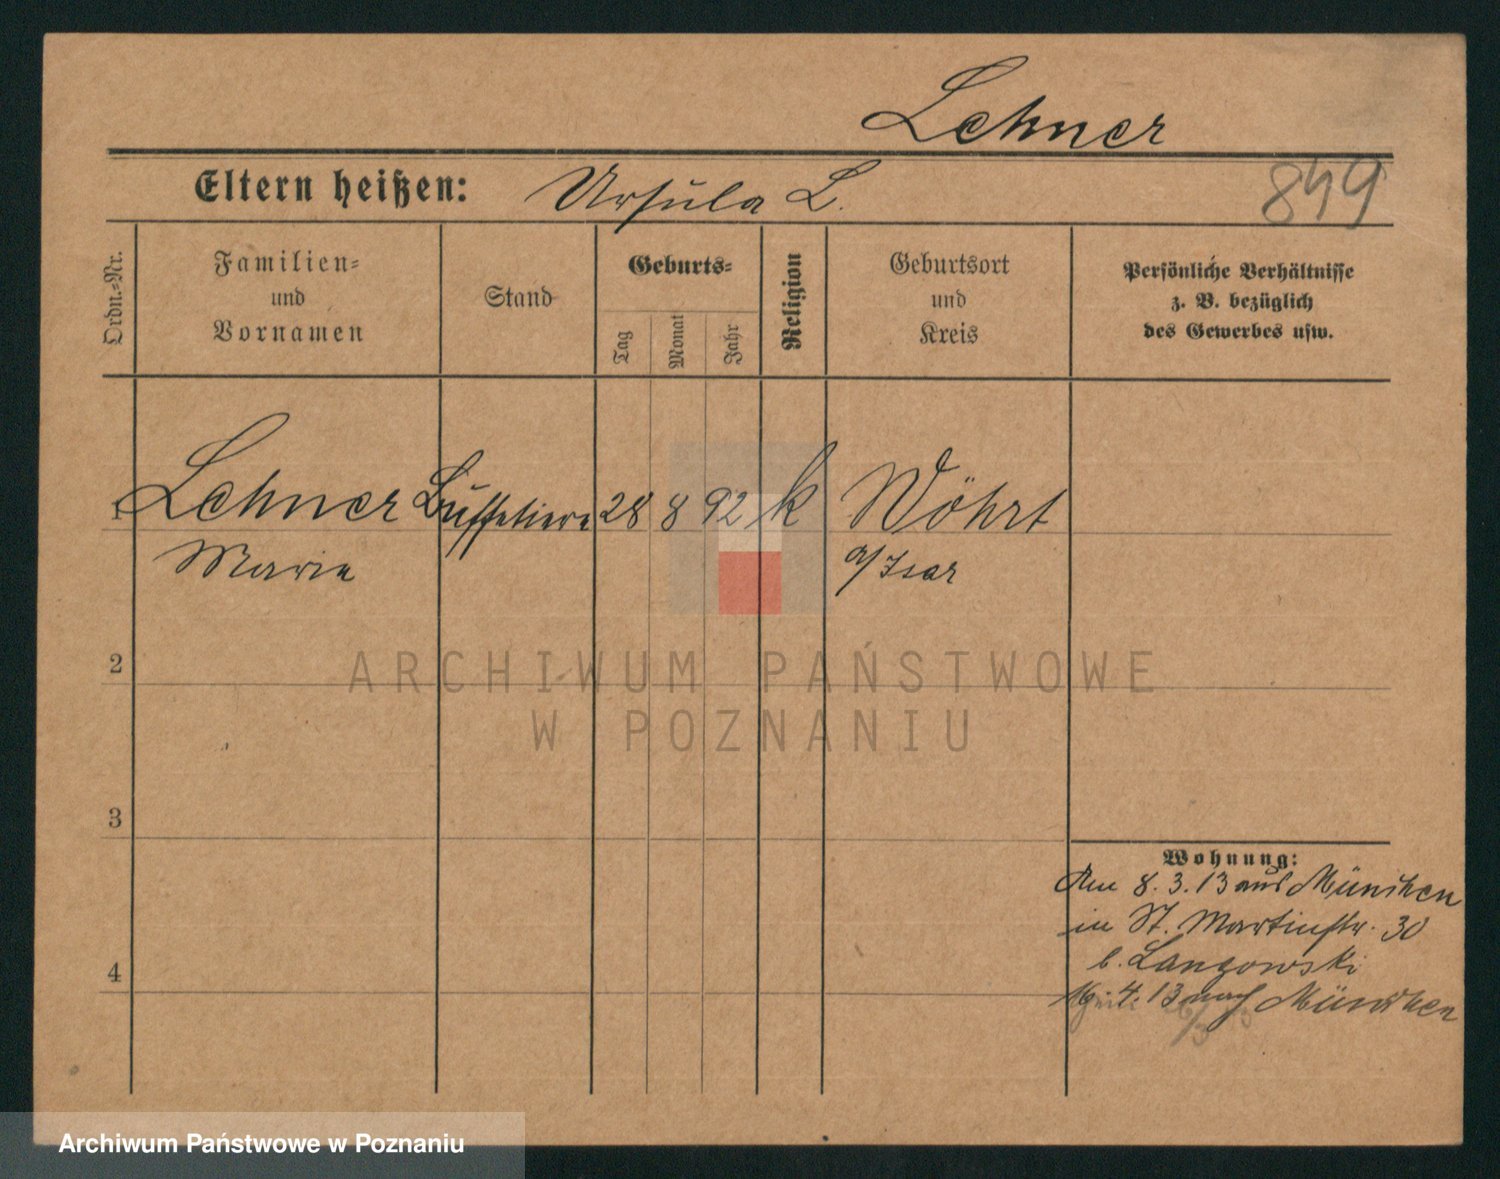 Lehner
Eltern heißen: Ursula L. 849
Ordn.-Nr.
Familien-
und
Vornamen
Stand
Geburts-
Tag
Monat
Jahr
Religion
Geburtsort
und
Kreis
Persönliche Verhältnisse
z. B. bezüglich
des Gewerbes usw.
1 Lehner Büffetiere 28 8 92 k Wöhrt
Marie a/Isar
2
ARCHIWUM PAŃSTWOWE
W POZNANIU
3
Wohnung:
Am 8.3.13 aus München
in St. Martinstr. 30
b. Langowski
4
16.4.13 nach München
Archiwum Państwowe w Poznaniu